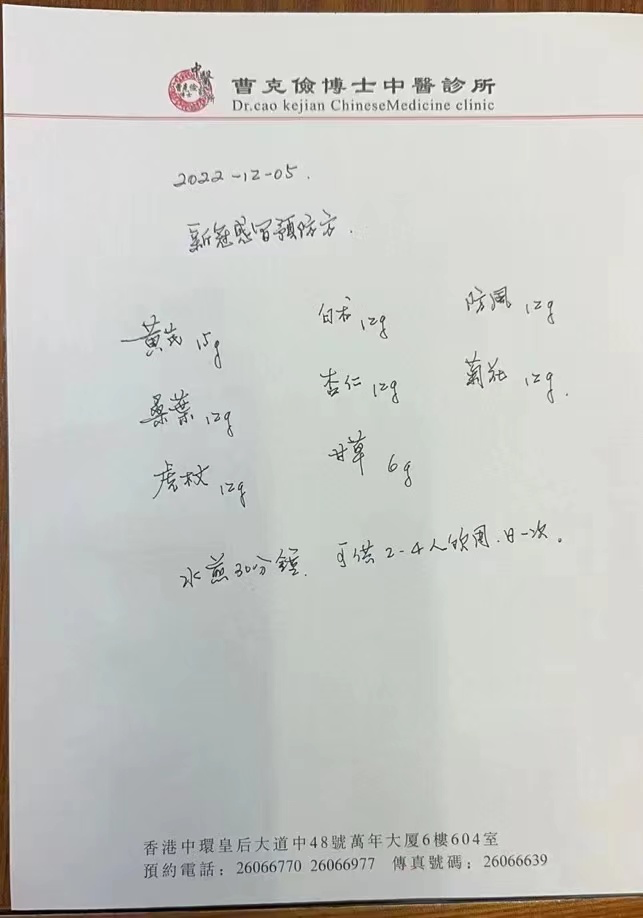 中醫
曹克儉博士中醫診所
Dr.cao kejian ChineseMedicine clinic
2022-12-05.
新冠感冒預防方.
黃芪 15g 白术 12g 防風 12g
桑葉 12g 杏仁 12g 菊花 12g.
虎杖 12g 甘草 6g
水煎30分鐘. 可供2-4人飲用.日一次。
香港中環皇后大道中48號萬年大廈6樓604室
預約電話：26066770 26066977 傳真號碼：26066639